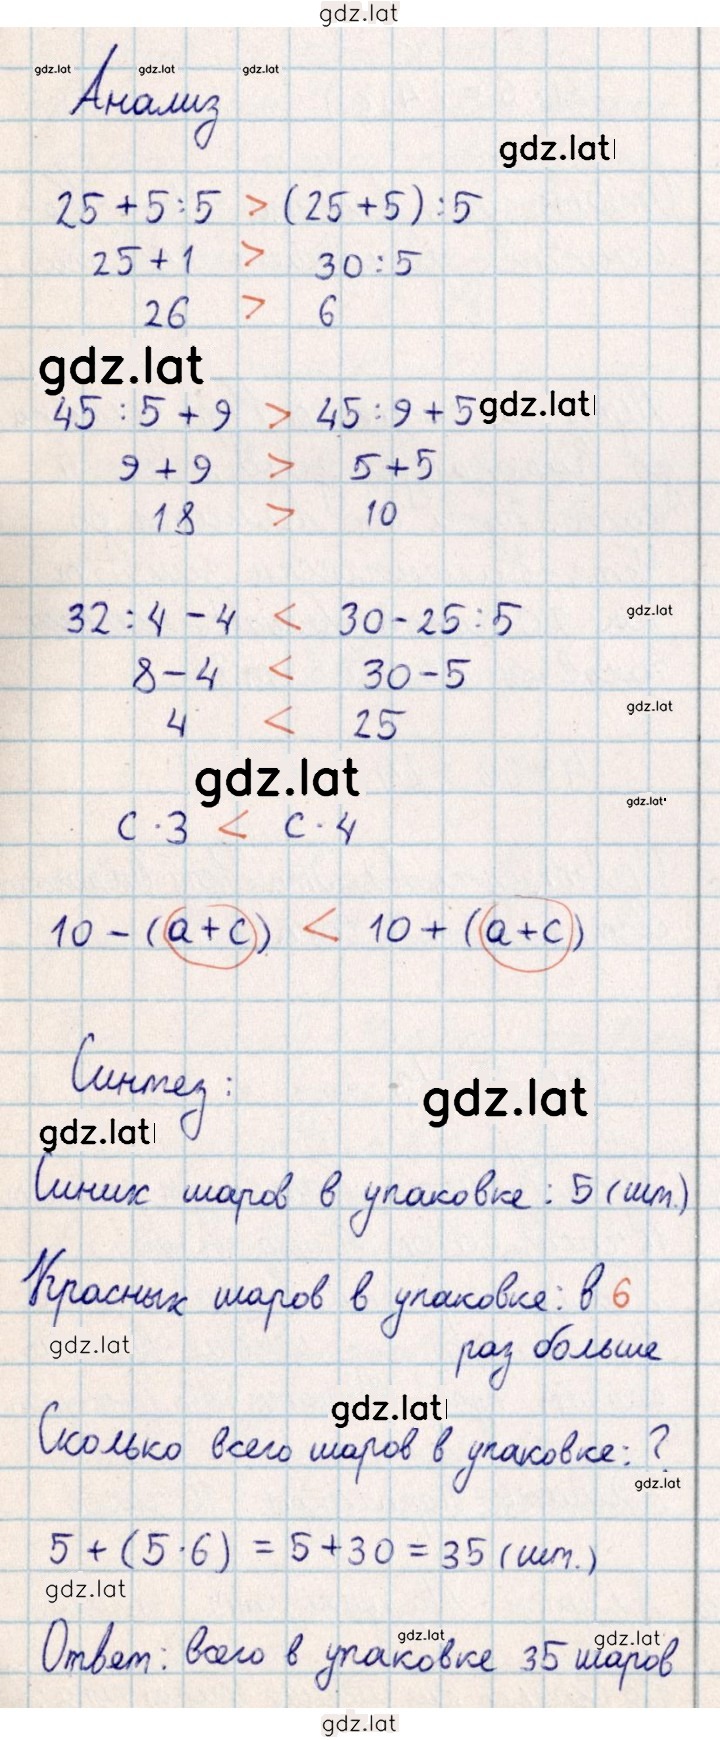 gdz.lat
gdz.lat gdz.lat gdz.lat
Анализ
gdz.lat
25 + 5 : 5 > (25 + 5) : 5
25 + 1 > 30 : 5
26 > 6
gdz.lat
45 : 5 + 9 > 45 : 9 + 5 gdz.lat
9 + 9 > 5 + 5
18 > 10
32 : 4 - 4 < 30 - 25 : 5 gdz.lat
8 - 4 < 30 - 5
4 < 25 gdz.lat
gdz.lat
gdz.lat
c · 3 < c · 4
10 - (a + c) < 10 + (a + c)
Синтез:
gdz.lat
gdz.lat
Синих шаров в упаковке: 5 (шт.)
Красных шаров в упаковке: в 6
gdz.lat раз больше
gdz.lat
Сколько всего шаров в упаковке: ?
gdz.lat
5 + (5 · 6) = 5 + 30 = 35 (шт.)
gdz.lat
gdz.lat gdz.lat
Ответ: всего в упаковке 35 шаров
gdz.lat